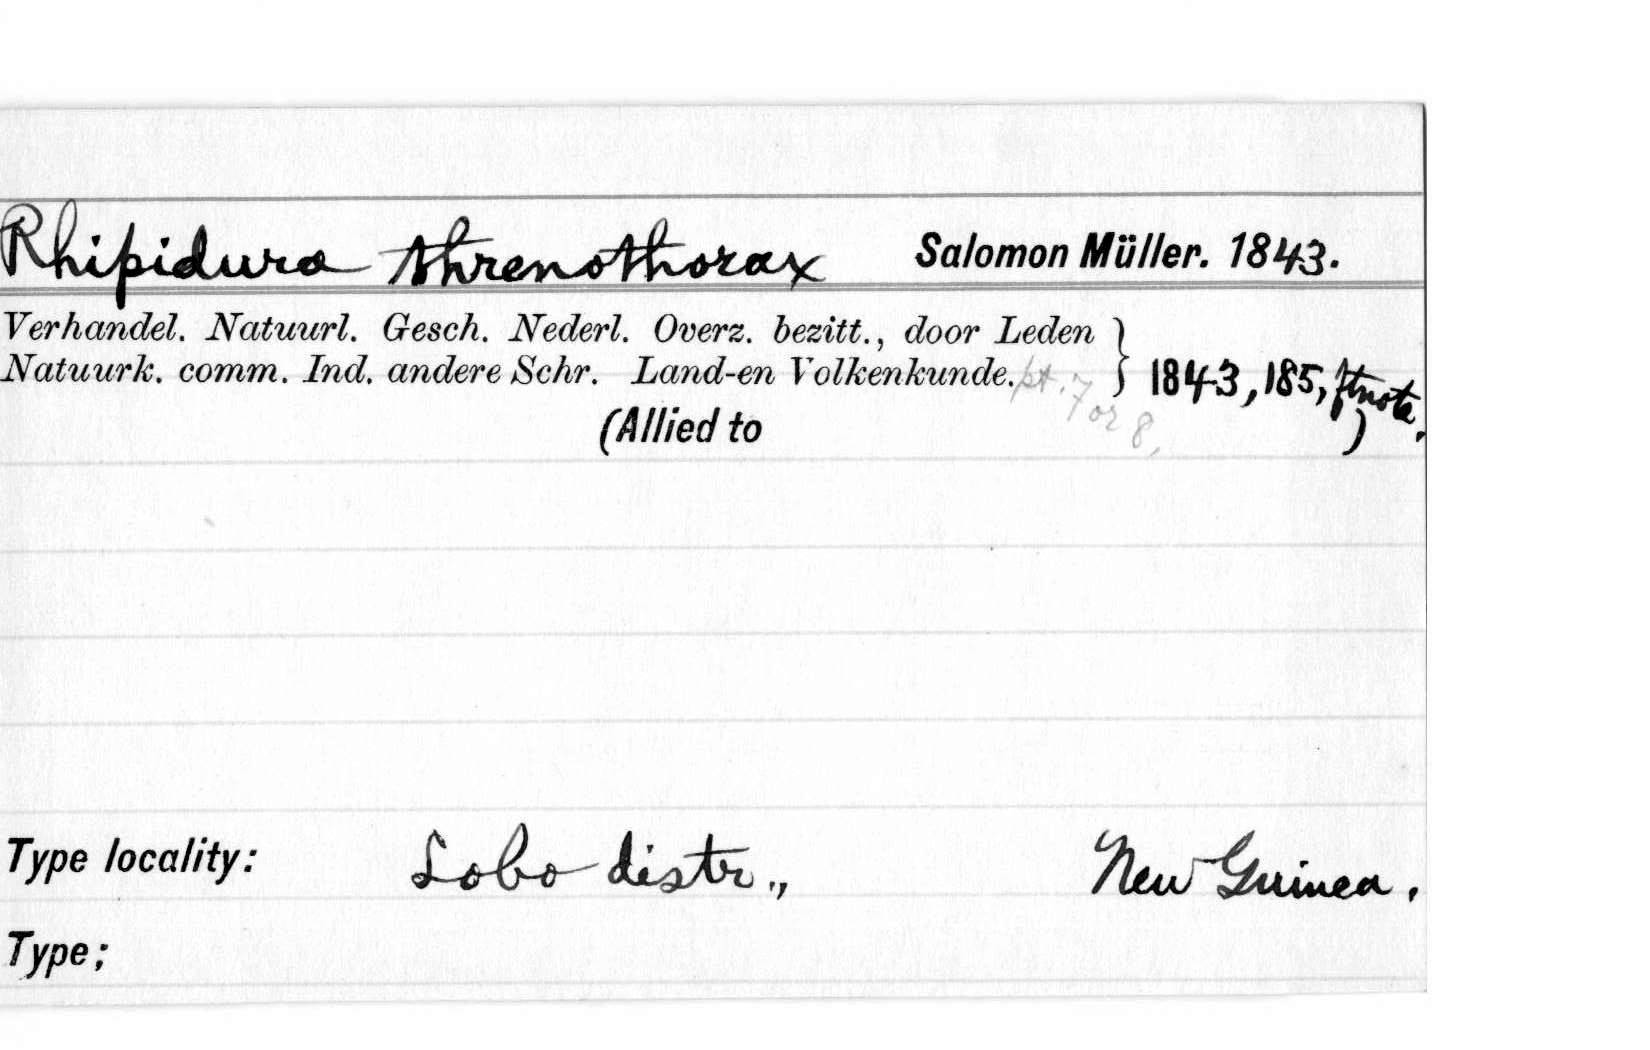 Rhipidura threnothorax Salomon Müller. 1843.
Verhandel. Natuurl. Gesch. Nederl. Overz. bezitt., door Leden }
Natuurk. comm. Ind. andere Schr. Land-en Volkenkunde. pt. 7 or 8, 1843, 185, ftnote.
(Allied to )
Type locality: Lobo distr., New Guinea.
Type;